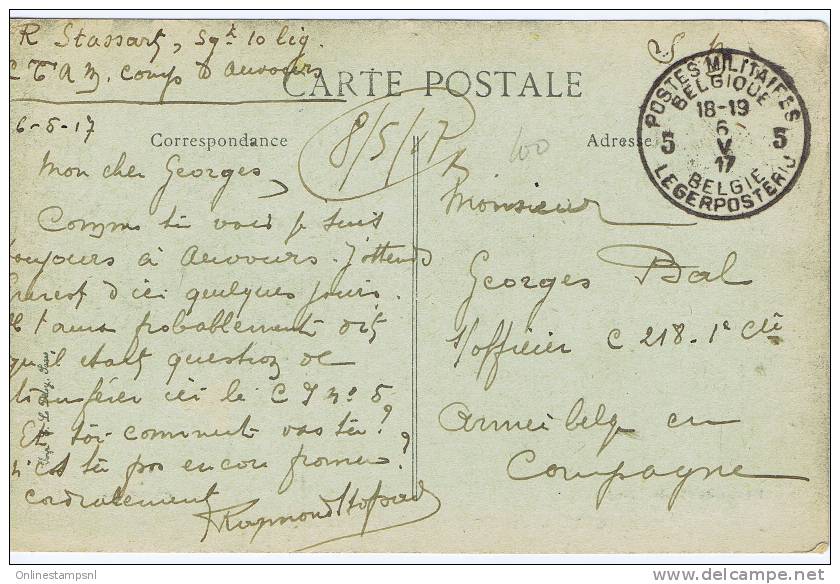 R Stassart, Sgt 10 lig.
C T A M. Camp d'Auvours
CARTE POSTALE
6-5-17
Correspondance
8/5/17
100
Adresse
POSTES MILITAIRES
BELGIQUE
18-19
6
V
17
5 5
BELGIE
LEGERPOSTERIJ
Mon cher Georges,
Comme tu vois je suis
toujours à Auvours. J'attends
d'ici quelques jours.
t'aura probablement dit
qu'il était question de
transférer ici le C I no 5
Et toi comment vas tu?
n'es tu pas encore promu?
cordialement
Raymond Stassart
Monsieur
Georges Bal
s/officier C 218 - 1e Cie
Armée belge en
Campagne
Onlinestampsnl
www.delcampe.net